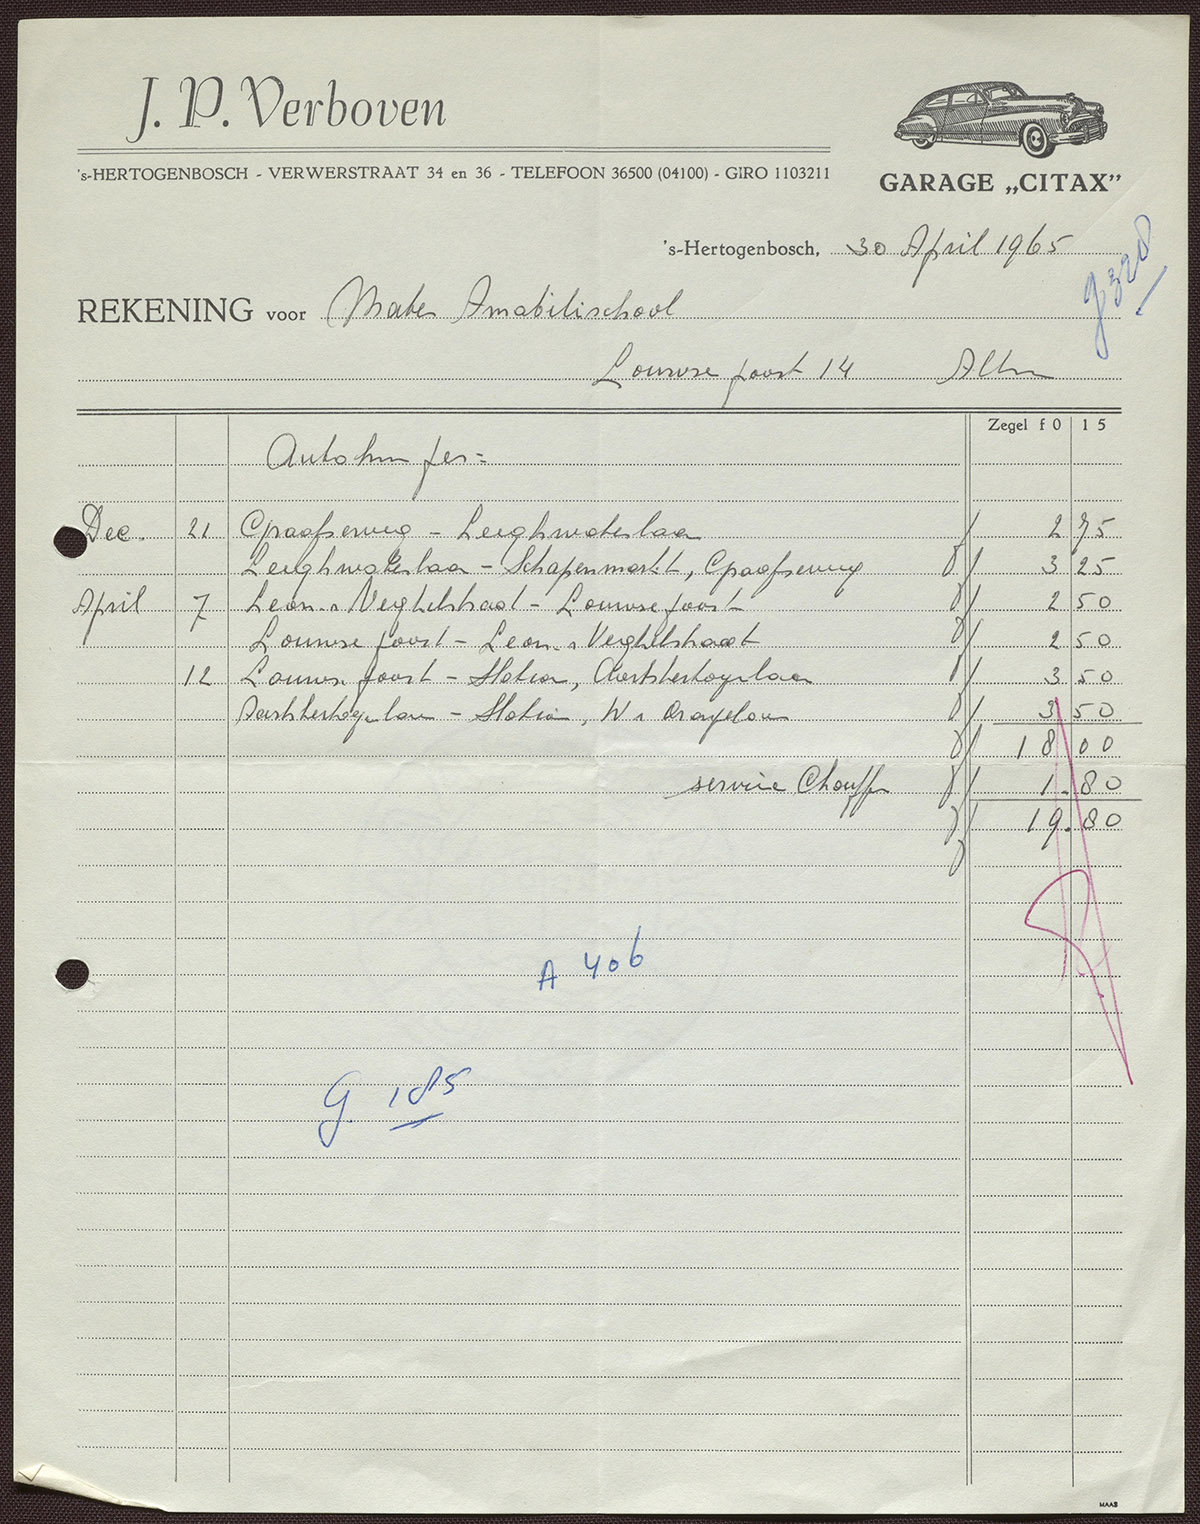 J. P. Verboven
's-HERTOGENBOSCH - VERWERSTRAAT 34 en 36 - TELEFOON 36500 (04100) - GIRO 1103211
GARAGE „CITAX”
's-Hertogenbosch, 30 April 1965
g 320
REKENING voor Mater Amabilisschool
Louwse poort 14 Alhier
Zegel f 0 15
Autohuur per =
Dec. 21 Graafseweg - Leeghwaterlaan / 2 75
Leeghwaterlaan - Schapenmarkt, Graafseweg / 3 25
April 7 Leon. v Veghelstraat - Louwse poort / 2 50
Louwse poort - Leon. v Veghelstraat / 2 50
12 Louwse poort - Station, Aartshertogenlaan / 3 50
Aartshertogenlaan - Station, W v Oranjelaan / 3 50
/ 18 00
service Chauff / 1.80
/ 19.80
A 406
G. 185
MAAS